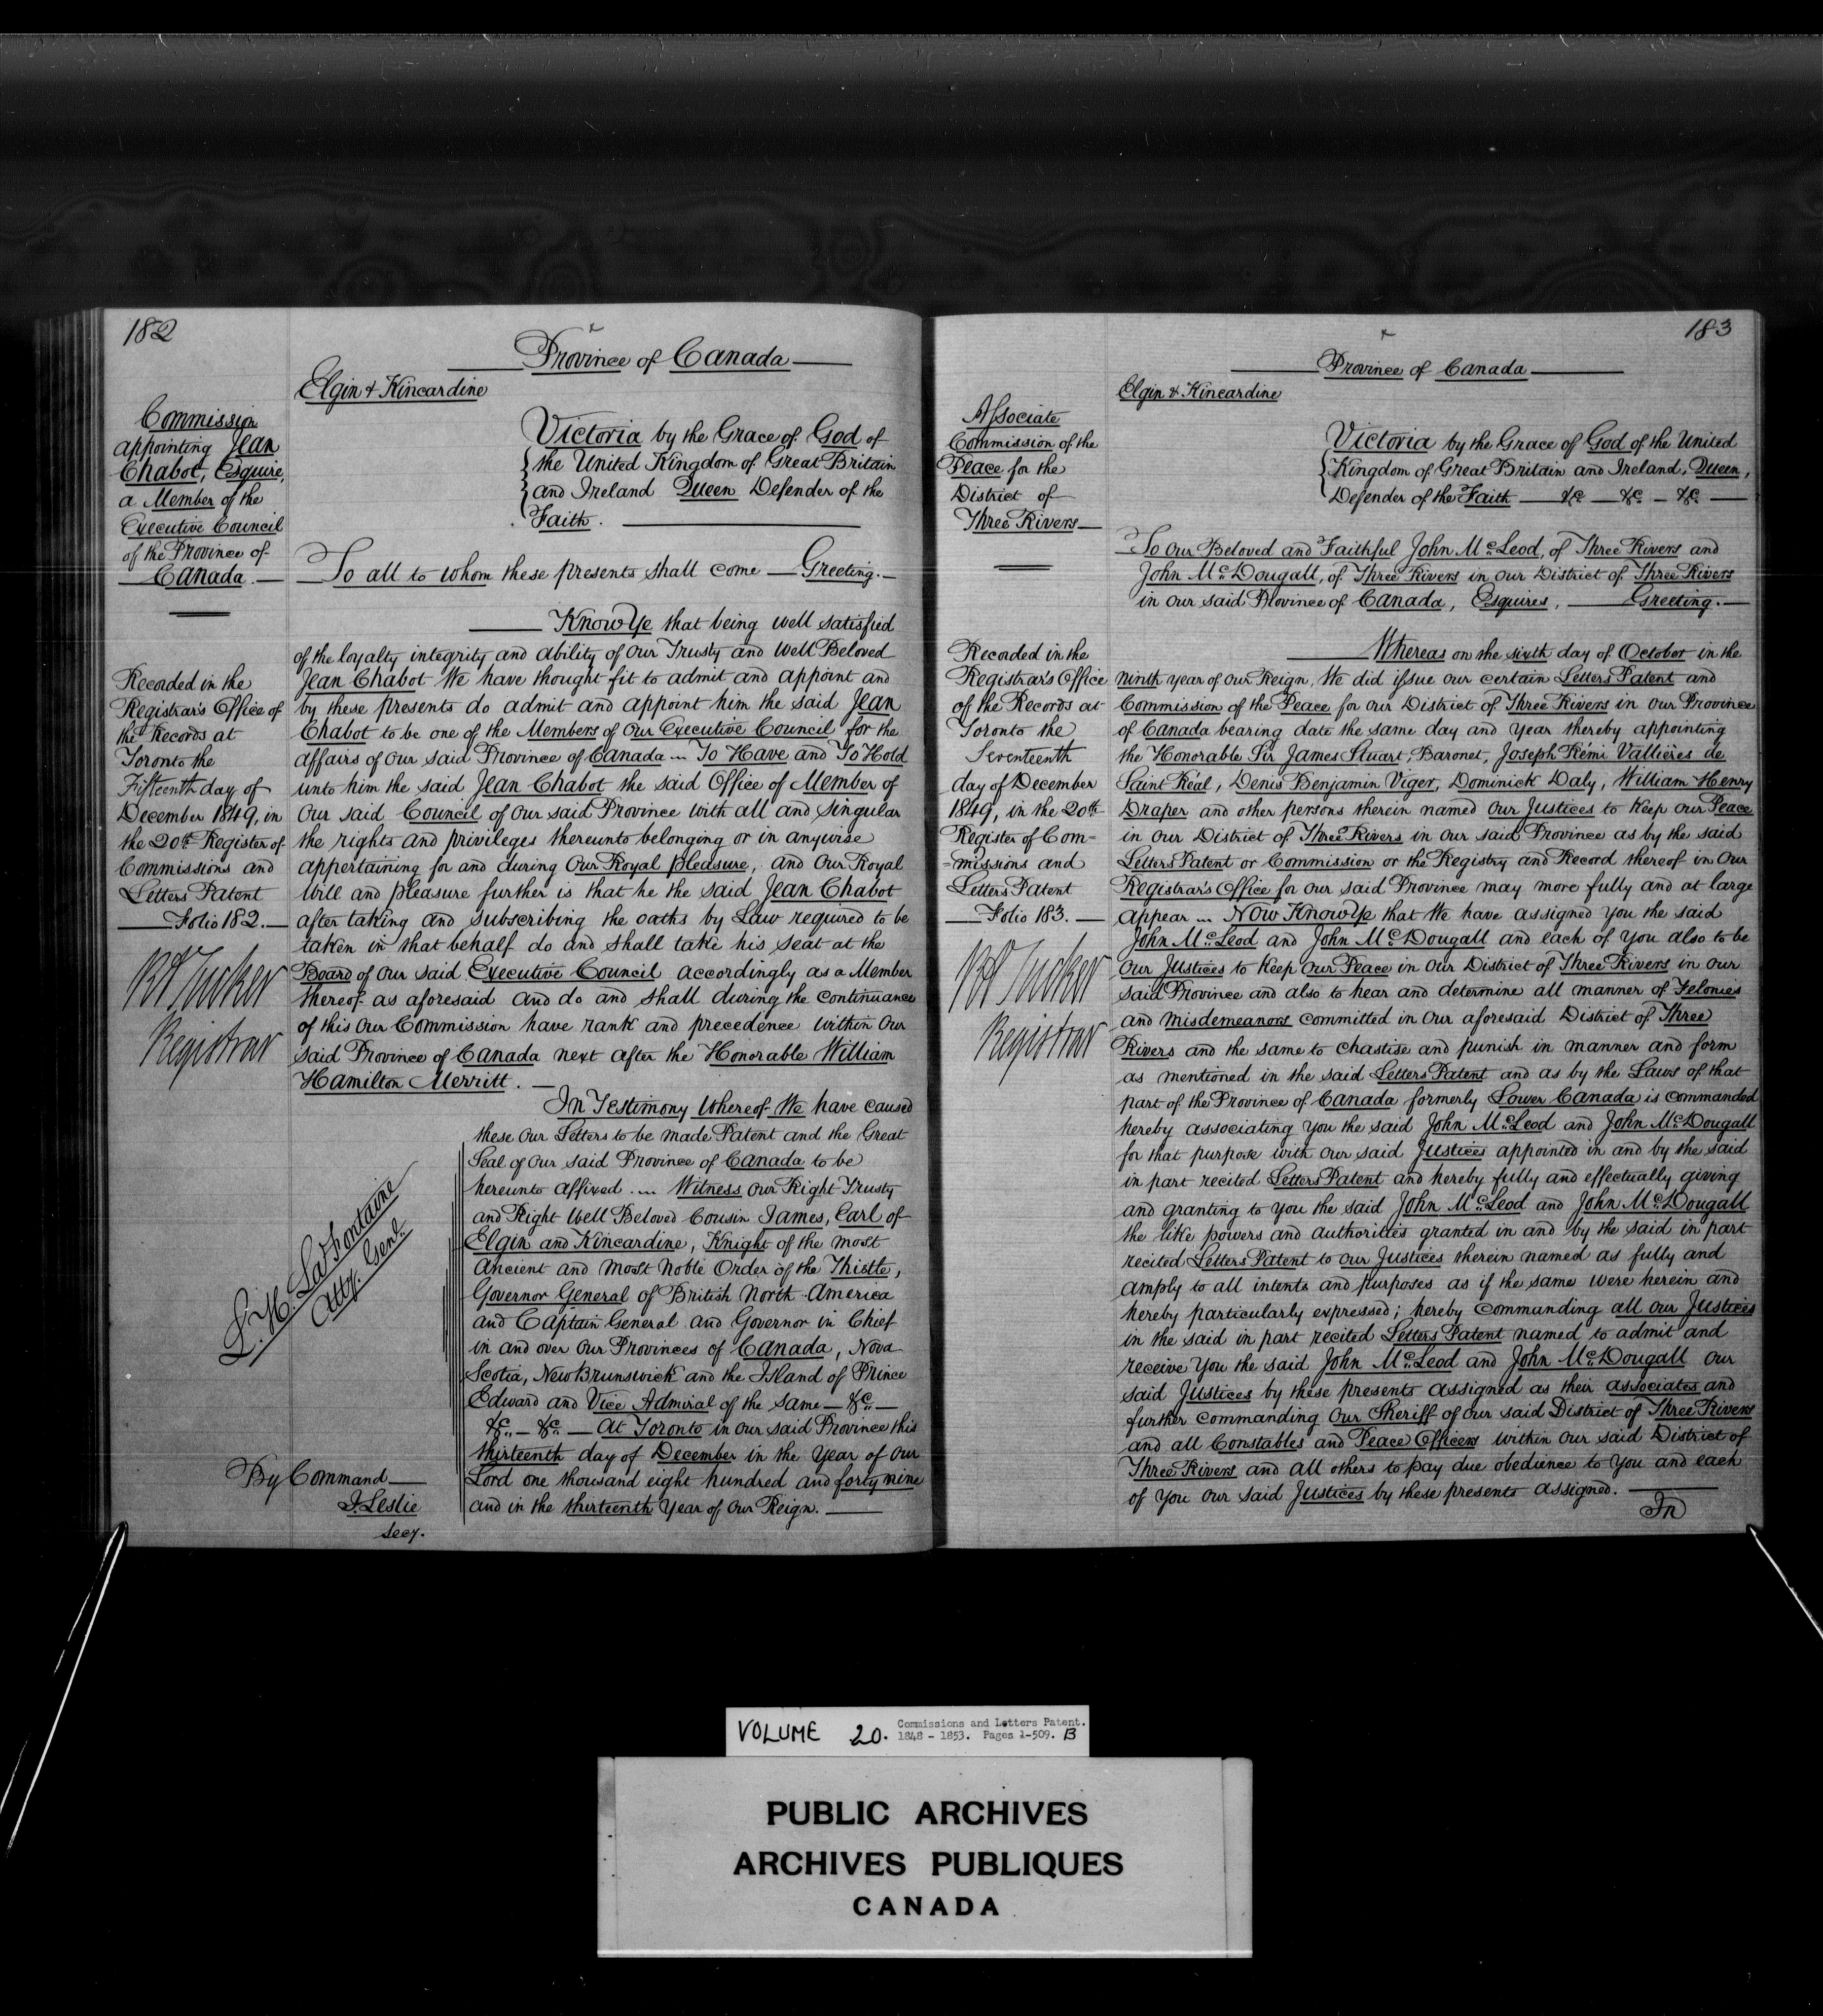 182
Province of Canada
Elgin & Kincardine
Commission
appointing Jean
Chabot, Esquire,
a Member of the
Executive Council
of the Province of
Canada.
Recorded in the
Registrar's Office of
the Records at
Toronto the
Fifteenth day of
December 1849, in
the 20th Register of
Commissions and
Letters Patent
Folio 182.
RA Tucker
Registrar
Victoria by the Grace of God of
the United Kingdom of Great Britain
and Ireland Queen Defender of the
Faith.
To all to whom these presents shall come — Greeting.
Know Ye that being well satisfied
of the loyalty integrity and ability of our Trusty and Well Beloved
Jean Chabot We have thought fit to admit and appoint and
by these presents do admit and appoint him the said Jean
Chabot to be one of the Members of our Executive Council for the
affairs of our said Province of Canada ... To Have and To Hold
unto him the said Jean Chabot the said Office of Member of
our said Council of our said Province with all and singular
the rights and privileges thereunto belonging or in anywise
appertaining for and during Our Royal pleasure, and Our Royal
will and pleasure further is that he the said Jean Chabot
after taking and subscribing the oaths by Law required to be
taken in that behalf do and shall take his seat at the
Board of our said Executive Council accordingly as a Member
thereof as aforesaid and do and shall during the continuance
of this our Commission have rank and precedence within our
said Province of Canada next after the Honorable William
Hamilton Merritt.
In Testimony Whereof We have caused
these our Letters to be made Patent and the Great
Seal of our said Province of Canada to be
hereunto affixed. ... Witness our Right Trusty
and Right Well Beloved Cousin James, Earl of
Elgin and Kincardine, Knight of the most
Ancient and most Noble Order of the Thistle,
Governor General of British North America
and Captain General and Governor in Chief
in and over our Provinces of Canada, Nova
Scotia, New Brunswick and the Island of Prince
Edward and Vice Admiral of the same — &c. —
&c. — &c. — At Toronto in our said Province this
thirteenth day of December in the Year of our
Lord one thousand eight hundred and forty nine
and in the thirteenth Year of our Reign.
L. H. LaFontaine
Atty. Genl.
By Command
J. Leslie
Secy.
183
Province of Canada
Elgin & Kincardine
Associate
Commission of the
Peace for the
District of
Three Rivers
Recorded in the
Registrar's Office
of the Records at
Toronto the
Seventeenth
day of December
1849, in the 20th
Register of Com=
=missions and
Letters Patent
Folio 183.
RA Tucker
Registrar
Victoria by the Grace of God of the United
Kingdom of Great Britain and Ireland, Queen,
Defender of the Faith — &c — &c — &c —
To our Beloved and Faithful John McLeod, of Three Rivers and
John McDougall, of Three Rivers in our District of Three Rivers
in our said Province of Canada, Esquires, — Greeting.
Whereas on the sixth day of October in the
ninth year of our Reign, We did issue our certain Letters Patent and
Commission of the Peace for our District of Three Rivers in our Province
of Canada bearing date the same day and year thereby appointing
the Honorable Sir James Stuart, Baronet, Joseph Rémi Vallières de
Saint Réal, Denis Benjamin Viger, Dominick Daly, William Henry
Draper and other persons therein named our Justices to keep our Peace
in our District of Three Rivers in our said Province as by the said
Letters Patent or Commission or the Registry and Record thereof in our
Registrar's Office for our said Province may more fully and at large
appear ... Now Know Ye that We have assigned you the said
John McLeod and John McDougall and each of you also to be
our Justices to keep our Peace in our District of Three Rivers in our
said Province and also to hear and determine all manner of Felonies
and misdemeanors committed in our aforesaid District of Three
Rivers and the same to chastise and punish in manner and form
as mentioned in the said Letters Patent and as by the Laws of that
part of the Province of Canada formerly Lower Canada is commanded
hereby associating you the said John McLeod and John McDougall
for that purpose with our said Justices appointed in and by the said
in part recited Letters Patent and hereby fully and effectually giving
and granting to you the said John McLeod and John McDougall
the like powers and authorities granted in and by the said in part
recited Letters Patent to our Justices therein named as fully and
amply to all intents and purposes as if the same were herein and
hereby particularly expressed; hereby commanding all our Justices
in the said in part recited Letters Patent named to admit and
receive you the said John McLeod and John McDougall our
said Justices by these presents assigned as their associates and
further commanding our Sheriff of our said District of Three Rivers
and all Constables and Peace Officers within our said District of
Three Rivers and all others to pay due obedience to you and each
of you our said Justices by these presents assigned.
In
VOLUME 20. Commissions and Letters Patent.
1848 - 1853. Pages 1-509. B
PUBLIC ARCHIVES
ARCHIVES PUBLIQUES
CANADA